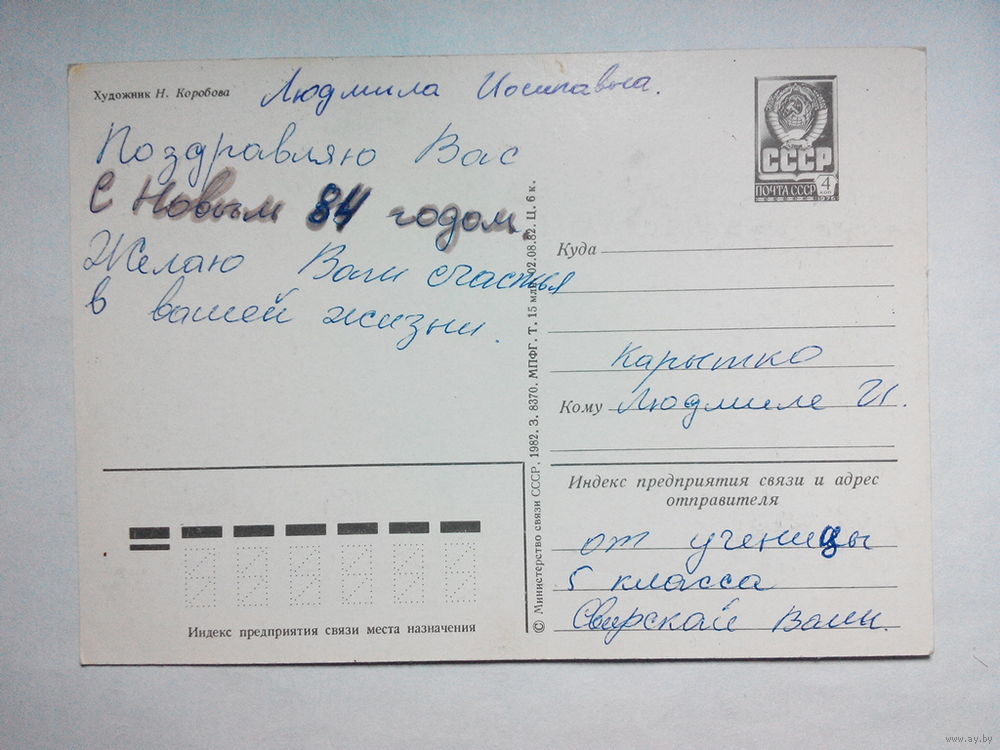 Художник Н. Коробова
Людмила Иосипавна.
Поздравляю Вас
С Новым 84 годом.
Желаю Вам счастья
в вашей жизни.
СССР
ПОЧТА СССР 4 коп
1976
Куда
Карытко
Кому Людмиле И.
Индекс предприятия связи и адрес
отправителя
от ученицы
5 класса
Свирской Вали.
Индекс предприятия связи места назначения
© Министерство связи СССР. 1982. З. 8370. МПФГ. Т. 15 млн. 02.08.82. Ц. 6 к.
www.ay.by